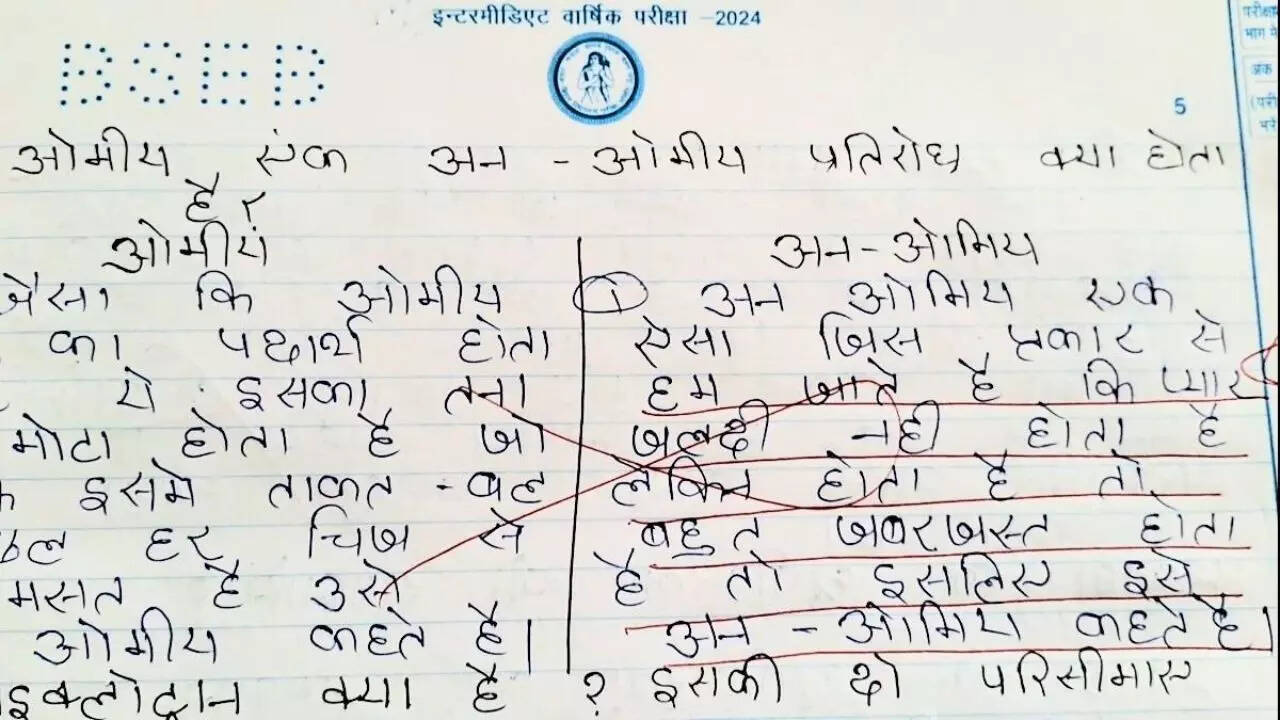 इन्टरमीडिएट वार्षिक परीक्षा -2024
BSEB
5
परीक्षा
भाग में
अंक
(परी
ओमीय एंक अन - ओमीय प्रतिरोध क्या होता
है ?
ओमीय
जैसा कि ओमीय
का पदार्थ होता
ये इसका तना
मोटा होता है जो
इसमे ताकत - बल
हर चिज से
मसत है उसे
ओमीय कहते है।
अन - ओमिय
① अन ओमिय एक
ऐसा जिस प्रकार से
हम जाते है कि प्यार
जलदी नही होता है
लेकिन होता है तो
बहुत जबरजस्त होता
है तो इसलिए इसे
अन - ओमिय कहते है।
इक्लोट्रान क्या है ? इसकी दो परिसीमाए